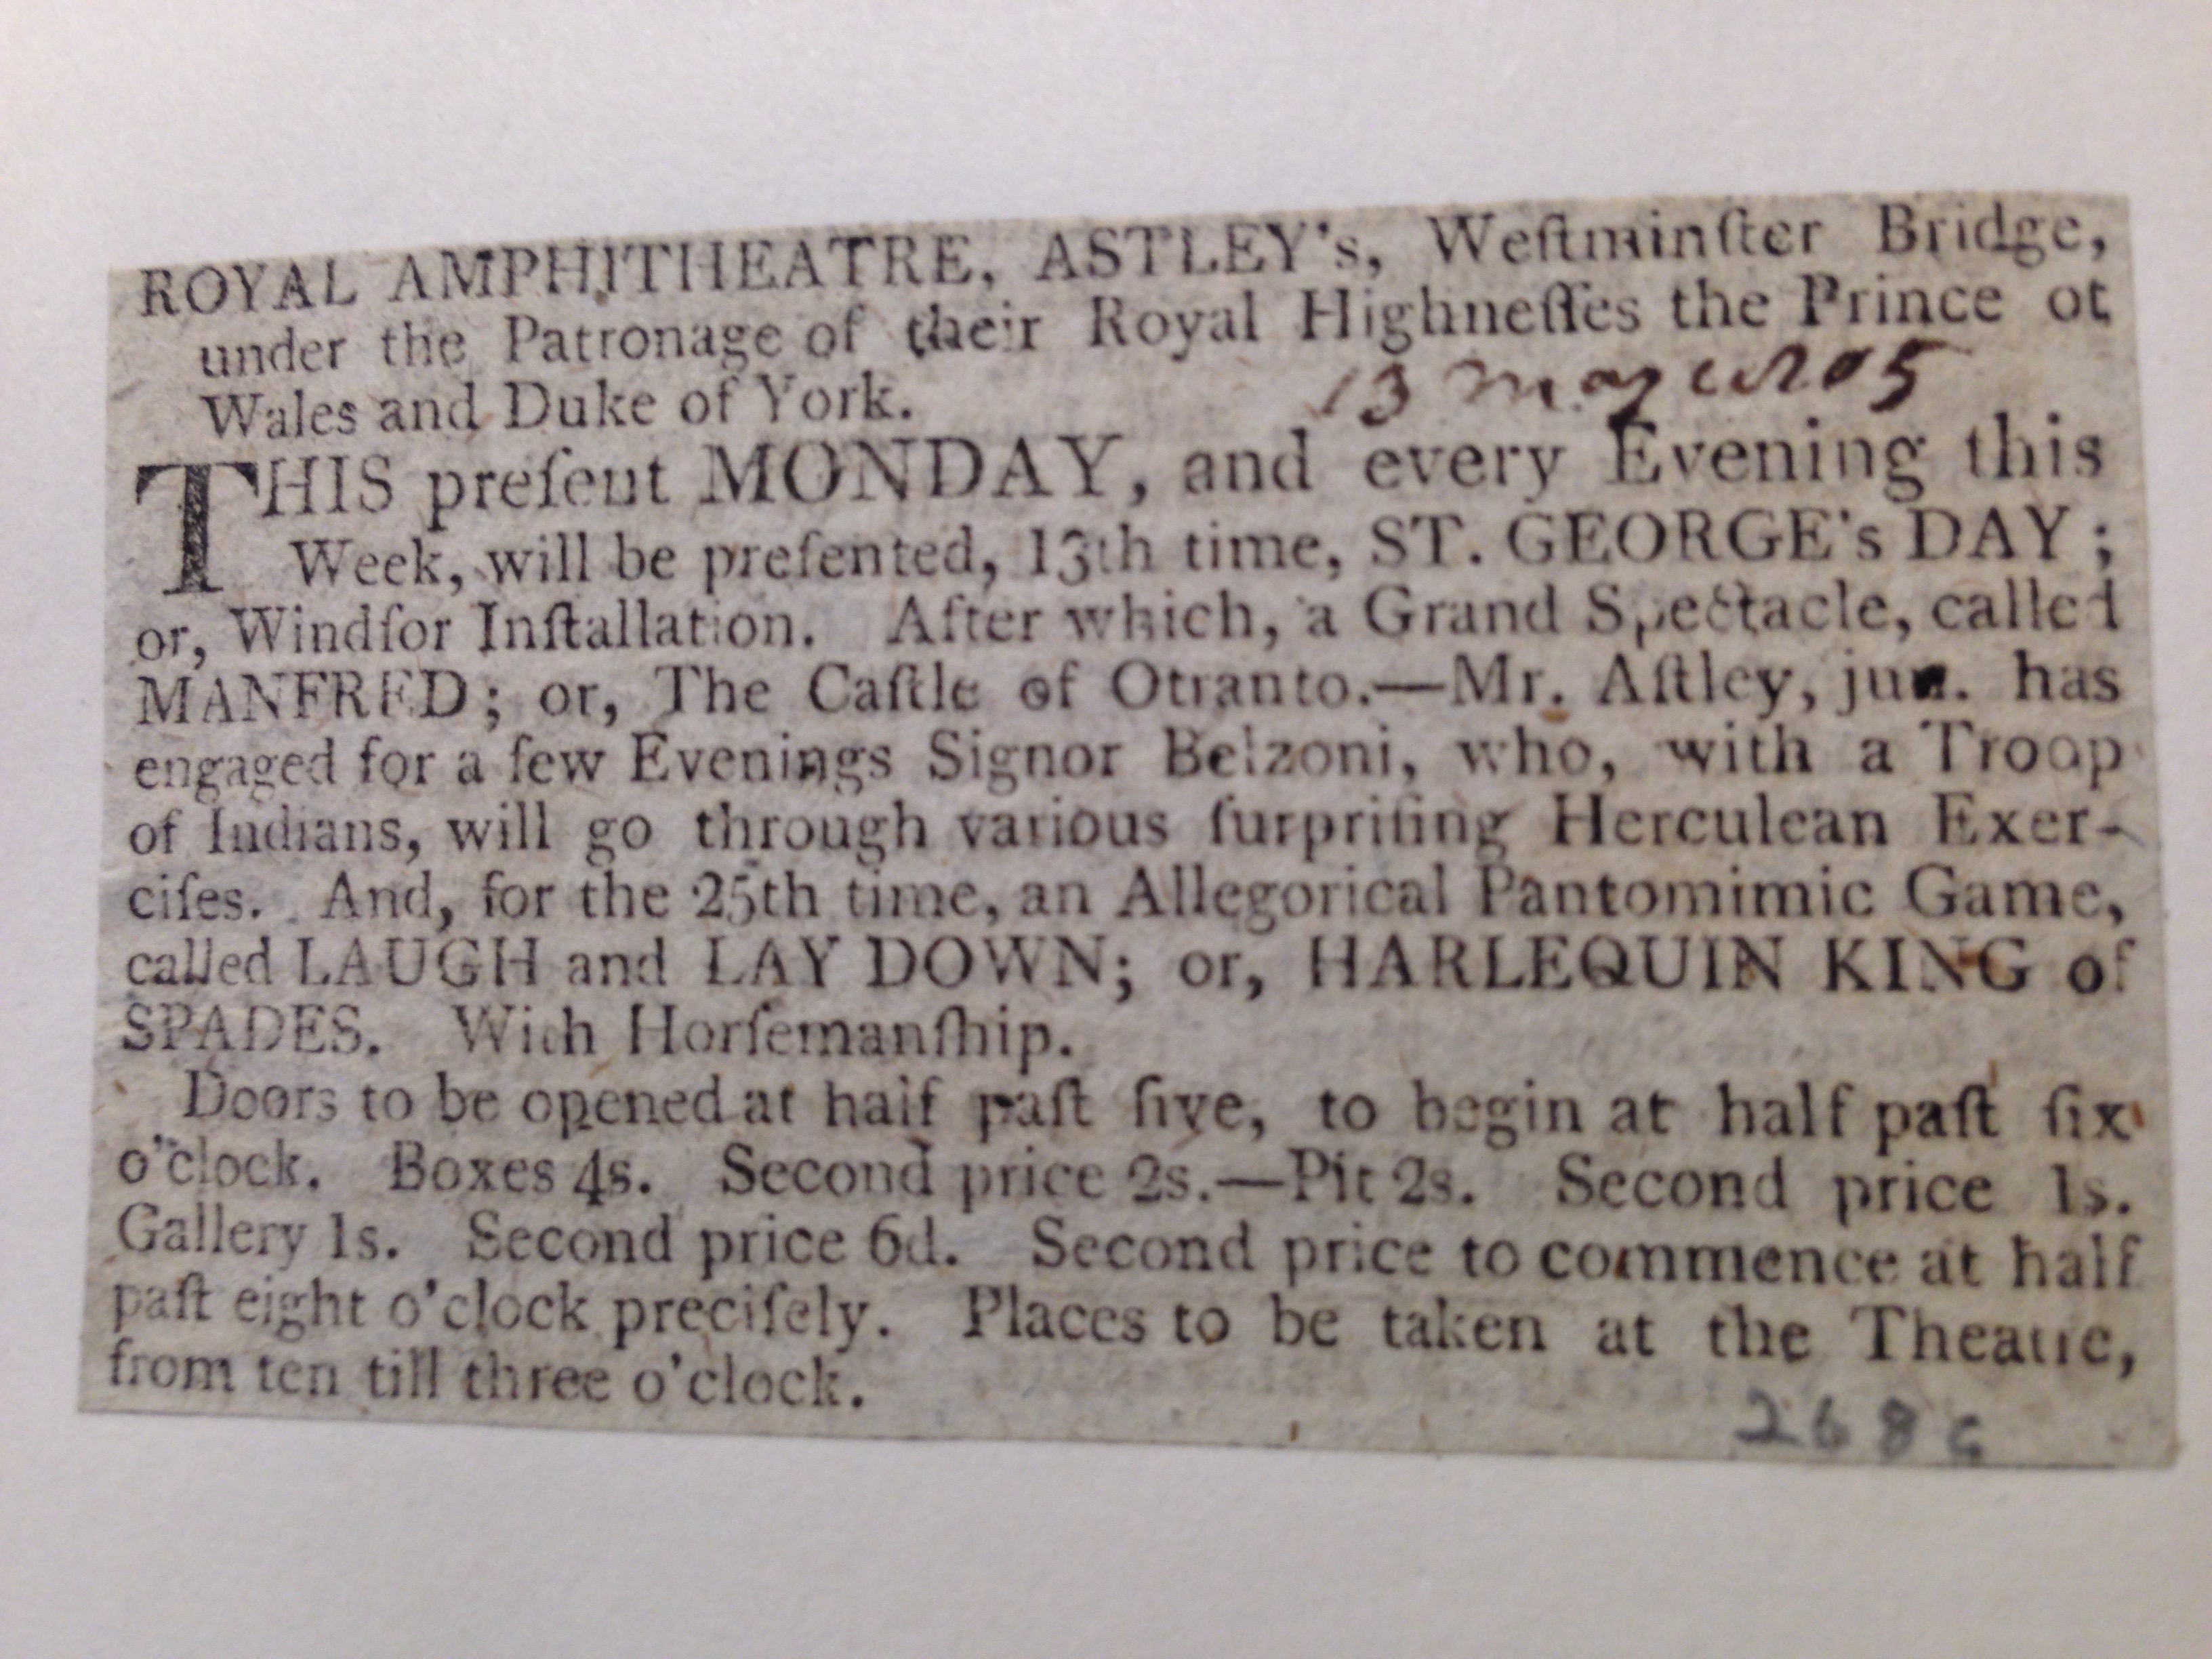 ROYAL AMPHITHEATRE, ASTLEY's, Weſtminſter Bridge,
under the Patronage of their Royal Highneſſes the Prince of
Wales and Duke of York.
13 May 1805
THIS preſent MONDAY, and every Evening this
Week, will be preſented, 13th time, ST. GEORGE's DAY;
or, Windſor Inſtallation. After which, a Grand Spectacle, called
MANFRED; or, The Caſtle of Otranto.—Mr. Aſtley, jun. has
engaged for a few Evenings Signor Belzoni, who, with a Troop
of Indians, will go through various ſurpriſing Herculean Exer-
ciſes. And, for the 25th time, an Allegorical Pantomimic Game,
called LAUGH and LAY DOWN; or, HARLEQUIN KING of
SPADES. With Horſemanſhip.
Doors to be opened at half paſt five, to begin at half paſt ſix
o'clock. Boxes 4s. Second price 2s.—Pit 2s. Second price 1s.
Gallery 1s. Second price 6d. Second price to commence at half
paſt eight o'clock preciſely. Places to be taken at the Theatre,
from ten till three o'clock.
268